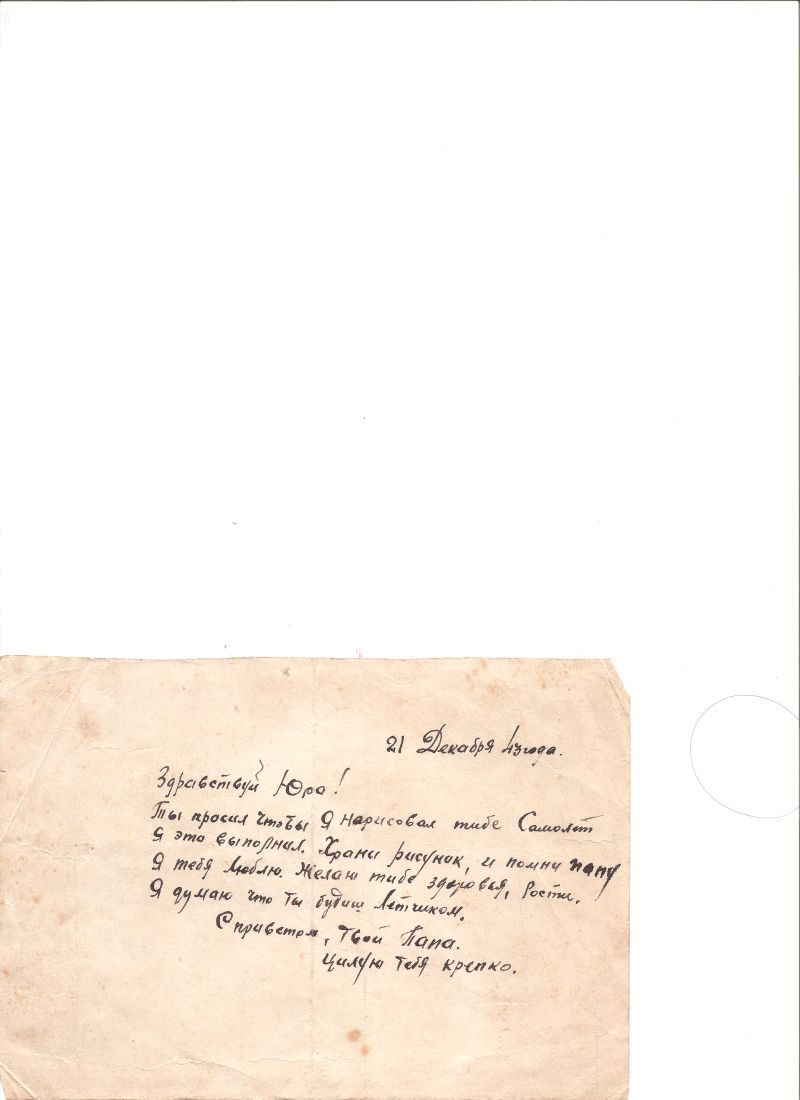 21 Декабря 43 года.
Здравствуй Юра!
Ты просил чтобы Я нарисовал тибе Самолет
Я это выполнил. Храни рисунак, и помни папу
Я тебя Люблю. Желаю тибе здоровья, Рости.
Я думаю что Ты будиш Летчиком.
С приветом, Твой Папа.
Цилую Тебя крепко.